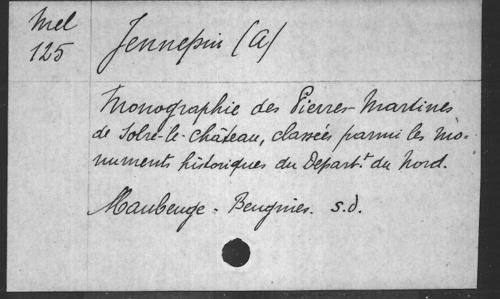 Mel
125
Jennepin (A)
Monographie des Pierres-Martines
de Solre-le-Château, classées parmi les mo-
numents historiques du Départ.t du Nord.
Maubeuge - Beugnies. s.d.